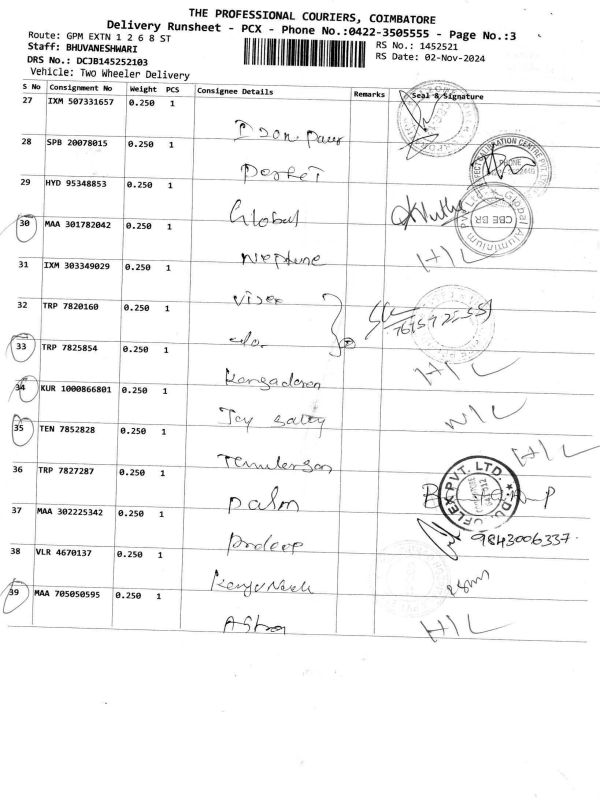 THE PROFESSIONAL COURIERS, COIMBATORE
Delivery Runsheet - PCX - Phone No.:0422-3505555 - Page No.:3
Route: GPM EXTN 1 2 6 8 ST
RS No.: 1452521
Staff: BHUVANESHWARI
RS Date: 02-Nov-2024
DRS No.: DCJB145252103
Vehicle: Two Wheeler Delivery
S No Consignment No Weight PCS Consignee Details Remarks Seal & Signature
27 IXM 507331657 0.250 1
28 SPB 20078015 0.250 1
29 HYD 95348853 0.250 1 Global
CBE BR
Global Aluminium Pvt Ltd
30 MAA 301782042 0.250 1 Neptune H/L
31 IXM 303349029 0.250 1
32 TRP 7820160 0.250 1 do.
33 TRP 7825854 0.250 1 H/L
34 KUR 1000866801 0.250 1 N/L
35 TEN 7852828 0.250 1 H/L
36 TRP 7827287 0.250 1 Palm
FLEX PVT. LTD.
37 MAA 302225342 0.250 1 Pradeep 9843006337.
38 VLR 4670137 0.250 1
39 MAA 705050595 0.250 1 Astra H/L